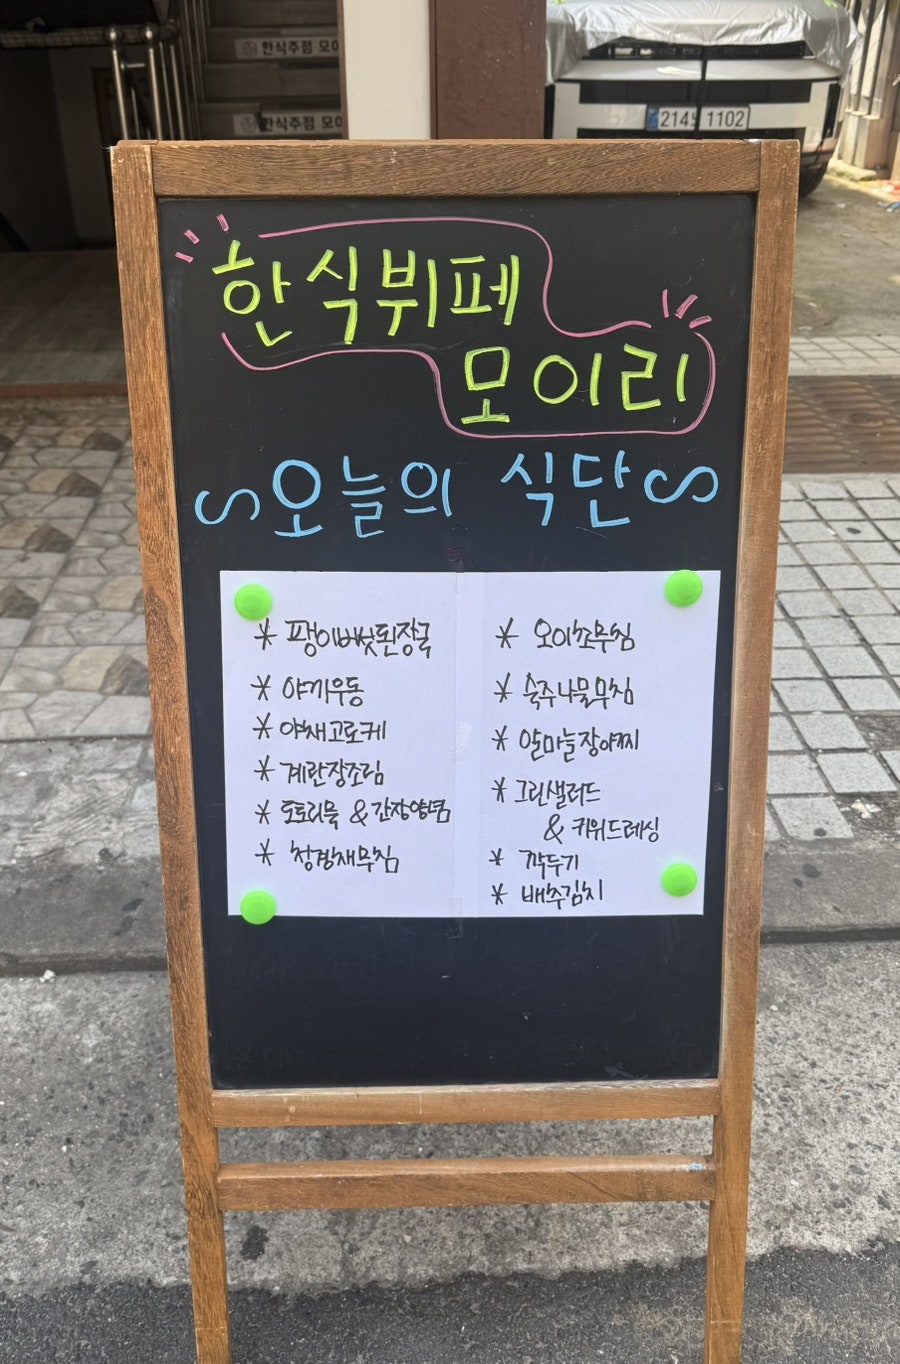 한식주점 모이
한식주점 모이
2145 1102
한식뷔페
모이리
오늘의 식단
* 팽이버섯된장국
* 야끼우동
* 야채고로케
* 계란장조림
* 도토리묵 & 간장양념
* 청경채무침
* 오이초무침
* 숙주나물무침
* 알마늘장아찌
* 그린샐러드
& 키위드레싱
* 깍두기
* 배추김치